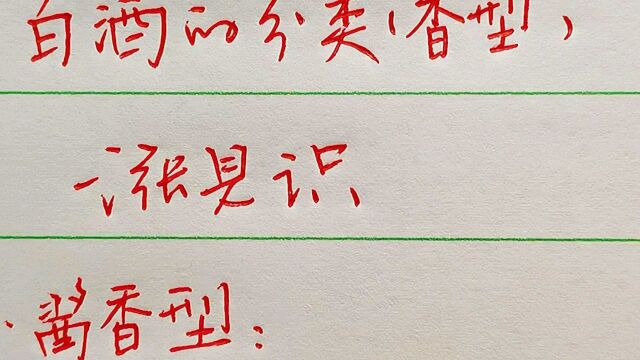 白酒的分类(香型)
一涨见识
酱香型: